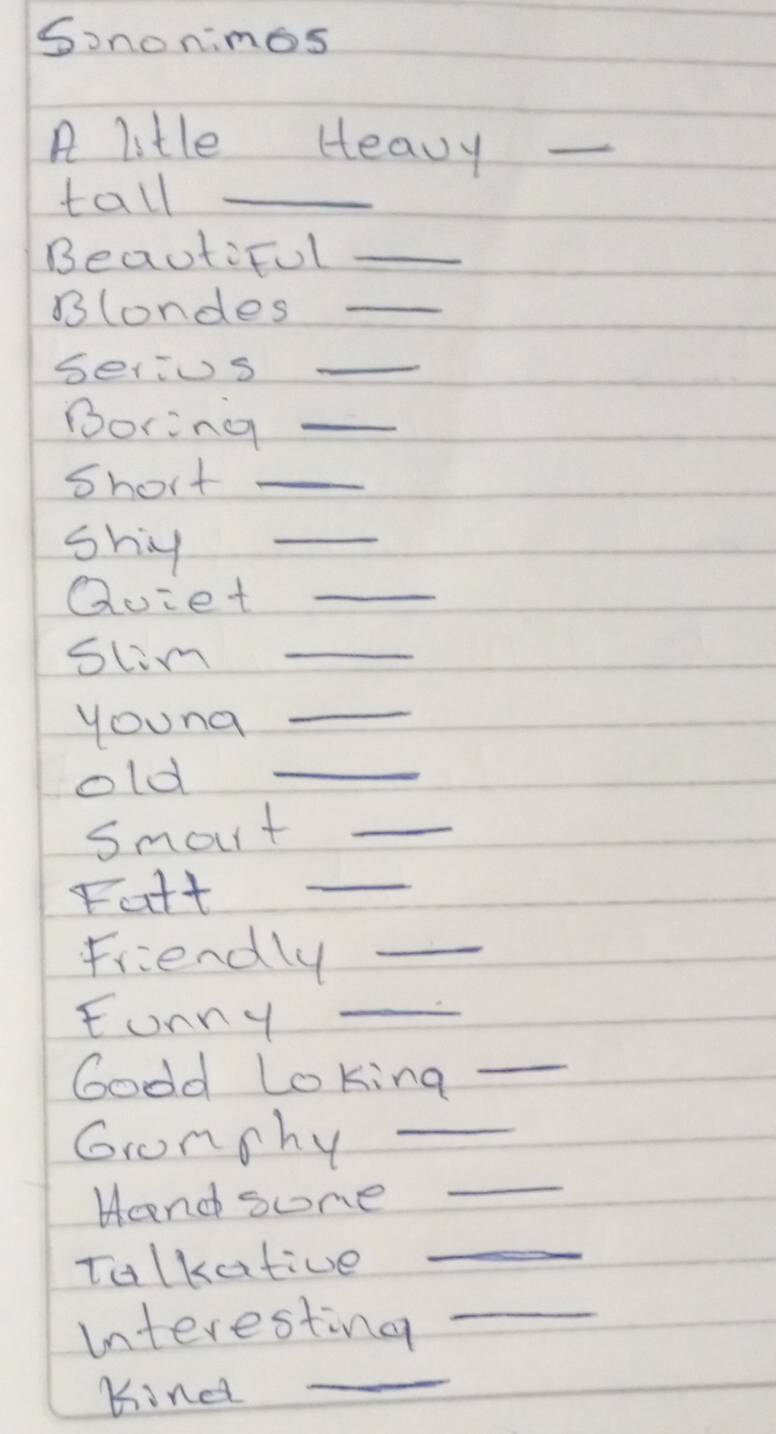 Sinonimos
A litle Heavy —
tall —
BeautiFul —
Blondes —
Serius —
Boring —
Short —
Shiy —
Quiet —
Slim —
Young —
old —
Smart —
Fatt —
Friendly —
Funny —
Godd Loking —
Grumphy —
Handsome —
Talkative —
Interesting —
Kind —